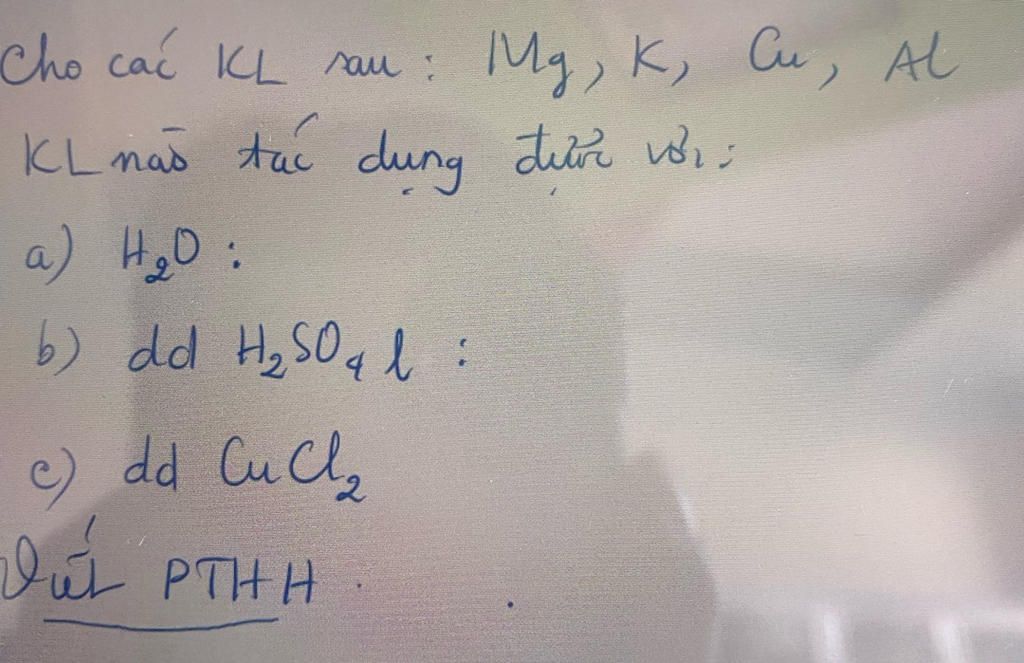 Cho các KL sau : Mg, K, Cu, Al
KL nào tác dụng được với :
a) H₂O :
b) dd H₂SO₄ l :
c) dd CuCl₂
Viết PTHH .